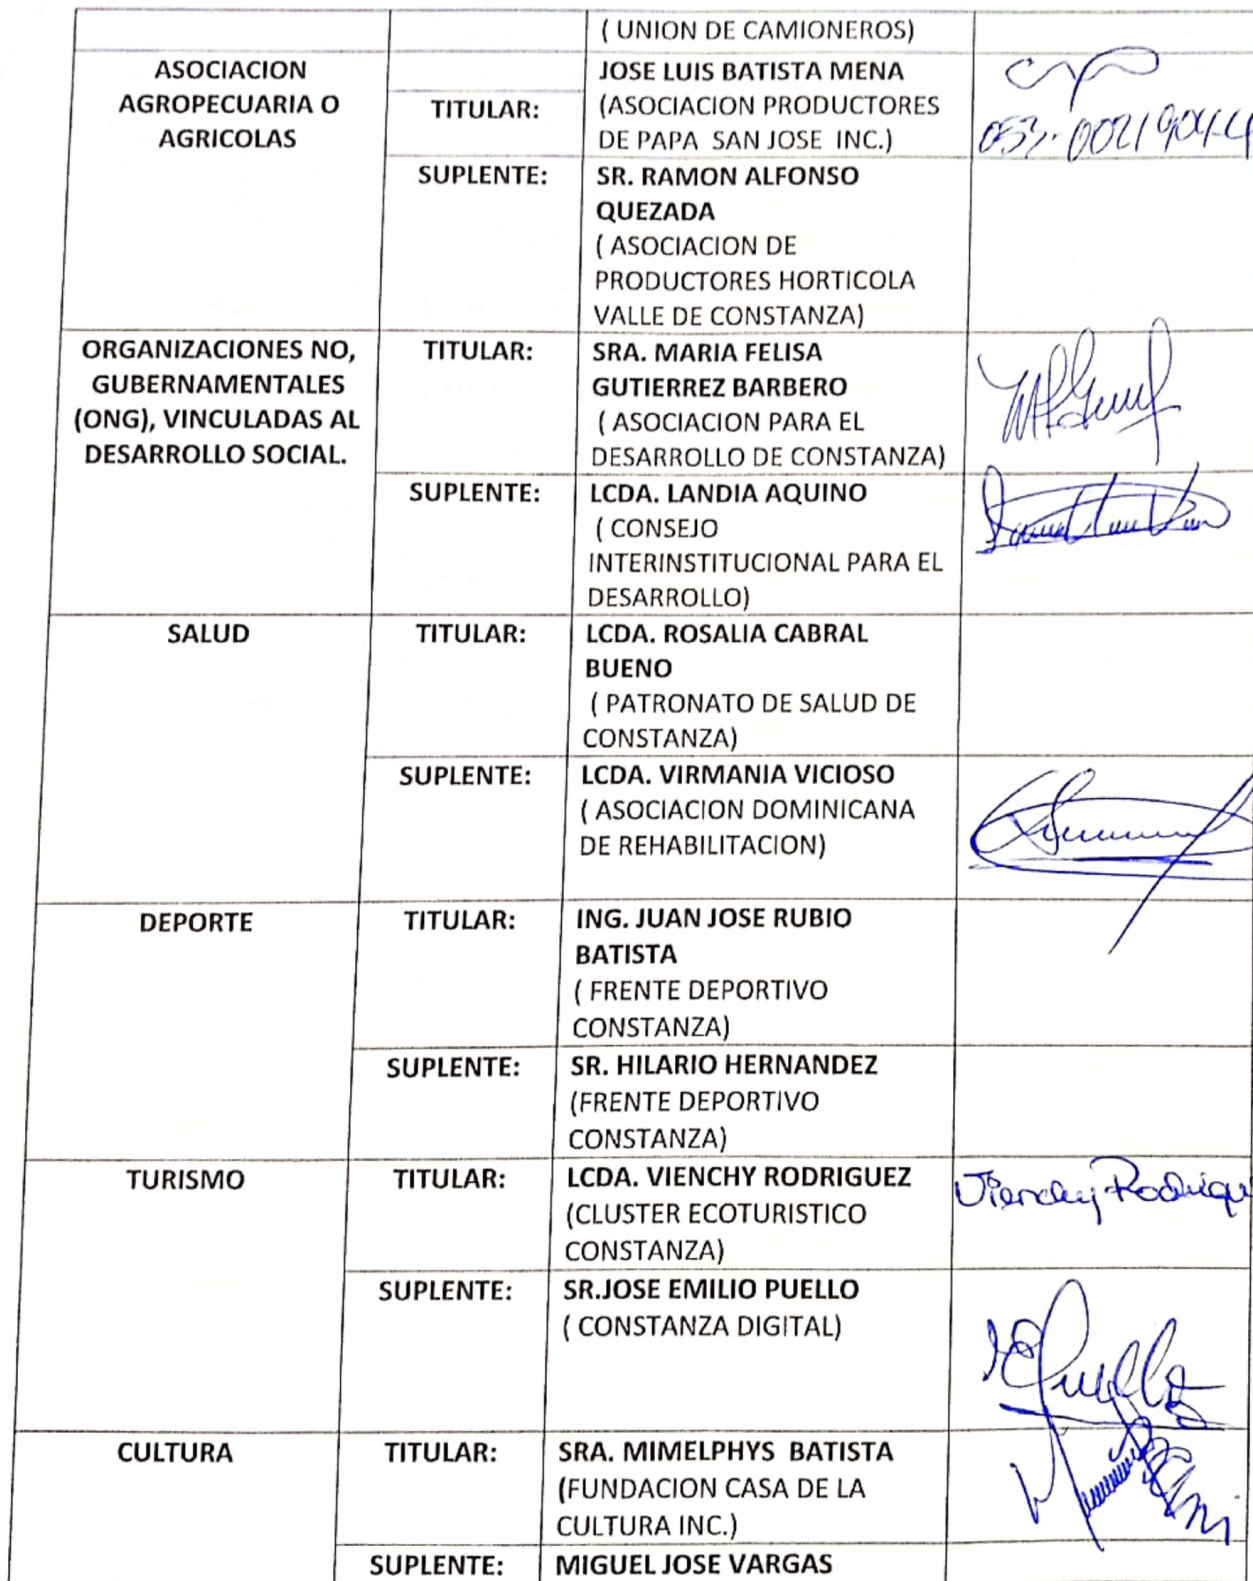 ( UNION DE CAMIONEROS)
ASOCIACION
AGROPECUARIA O
AGRICOLAS
TITULAR:
JOSE LUIS BATISTA MENA
(ASOCIACION PRODUCTORES
DE PAPA SAN JOSE INC.)
053-0021904-4
SUPLENTE:
SR. RAMON ALFONSO
QUEZADA
( ASOCIACION DE
PRODUCTORES HORTICOLA
VALLE DE CONSTANZA)
ORGANIZACIONES NO,
GUBERNAMENTALES
(ONG), VINCULADAS AL
DESARROLLO SOCIAL.
TITULAR:
SRA. MARIA FELISA
GUTIERREZ BARBERO
( ASOCIACION PARA EL
DESARROLLO DE CONSTANZA)
SUPLENTE:
LCDA. LANDIA AQUINO
( CONSEJO
INTERINSTITUCIONAL PARA EL
DESARROLLO)
SALUD
TITULAR:
LCDA. ROSALIA CABRAL
BUENO
( PATRONATO DE SALUD DE
CONSTANZA)
SUPLENTE:
LCDA. VIRMANIA VICIOSO
( ASOCIACION DOMINICANA
DE REHABILITACION)
DEPORTE
TITULAR:
ING. JUAN JOSE RUBIO
BATISTA
( FRENTE DEPORTIVO
CONSTANZA)
SUPLENTE:
SR. HILARIO HERNANDEZ
(FRENTE DEPORTIVO
CONSTANZA)
TURISMO
TITULAR:
LCDA. VIENCHY RODRIGUEZ
(CLUSTER ECOTURISTICO
CONSTANZA)
Vienchy Rodrigu
SUPLENTE:
SR.JOSE EMILIO PUELLO
( CONSTANZA DIGITAL)
CULTURA
TITULAR:
SRA. MIMELPHYS BATISTA
(FUNDACION CASA DE LA
CULTURA INC.)
SUPLENTE:
MIGUEL JOSE VARGAS